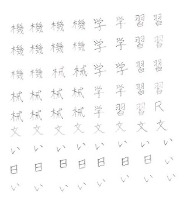 機機機機学学習習
機機機機学学習習
機機械械学学習習
械械械械学学習習
械械械械学習習R
文文文文文文文文
いいいいいいいい
日日日日日日日日
いいいいいいいい